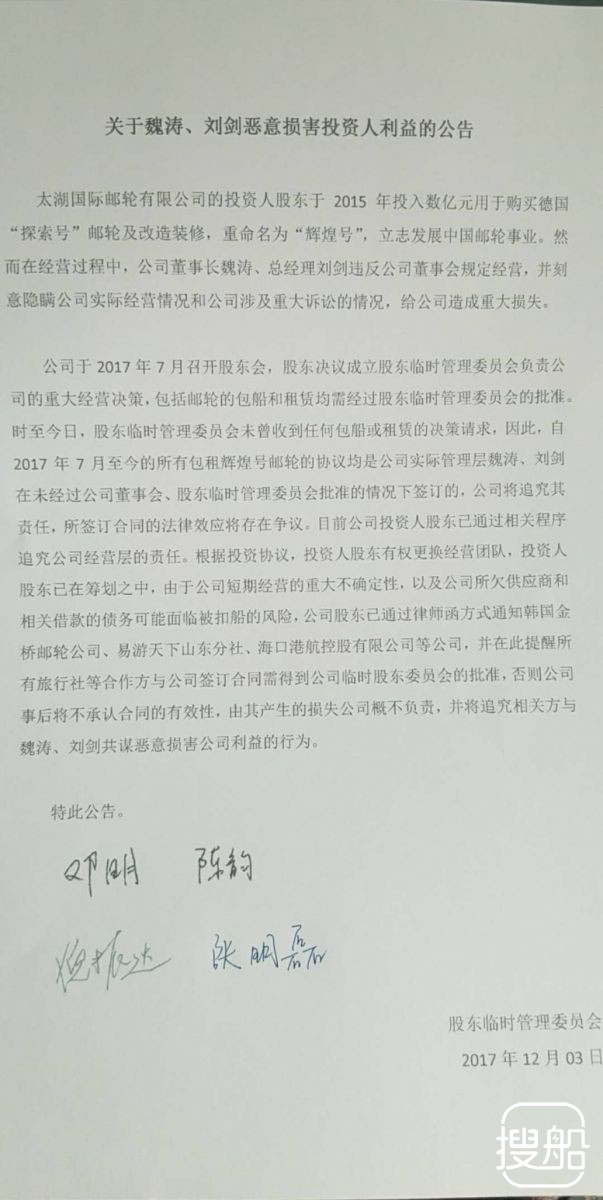 关于魏涛、刘剑恶意损害投资人利益的公告
太湖国际邮轮有限公司的投资人股东于 2015 年投入数亿元用于购买德国
“探索号”邮轮及改造装修，重命名为“辉煌号”，立志发展中国邮轮事业。然
而在经营过程中，公司董事长魏涛、总经理刘剑违反公司董事会规定经营，并刻
意隐瞒公司实际经营情况和公司涉及重大诉讼的情况，给公司造成重大损失。
公司于 2017 年 7 月召开股东会，股东决议成立股东临时管理委员会负责公
司的重大经营决策，包括邮轮的包船和租赁均需经过股东临时管理委员会的批准。
时至今日，股东临时管理委员会未曾收到任何包船或租赁的决策请求，因此，自
2017 年 7 月至今的所有包租辉煌号邮轮的协议均是公司实际管理层魏涛、刘剑
在未经过公司董事会、股东临时管理委员会批准的情况下签订的，公司将追究其
责任，所签订合同的法律效应将存在争议。目前公司投资人股东已通过相关程序
追究公司经营层的责任。根据投资协议，投资人股东有权更换经营团队，投资人
股东已在筹划之中，由于公司短期经营的重大不确定性，以及公司所欠供应商和
相关借款的债务可能面临被扣船的风险，公司股东已通过律师函方式通知韩国金
桥邮轮公司、易游天下山东分社、海口港航控股有限公司等公司，并在此提醒所
有旅行社等合作方与公司签订合同需得到公司临时股东委员会的批准，否则公司
事后将不承认合同的有效性，由其产生的损失公司概不负责，并将追究相关方与
魏涛、刘剑共谋恶意损害公司利益的行为。
特此公告。
邓明 陈韵
张明磊
股东临时管理委员会
2017 年 12 月 03 日
搜船